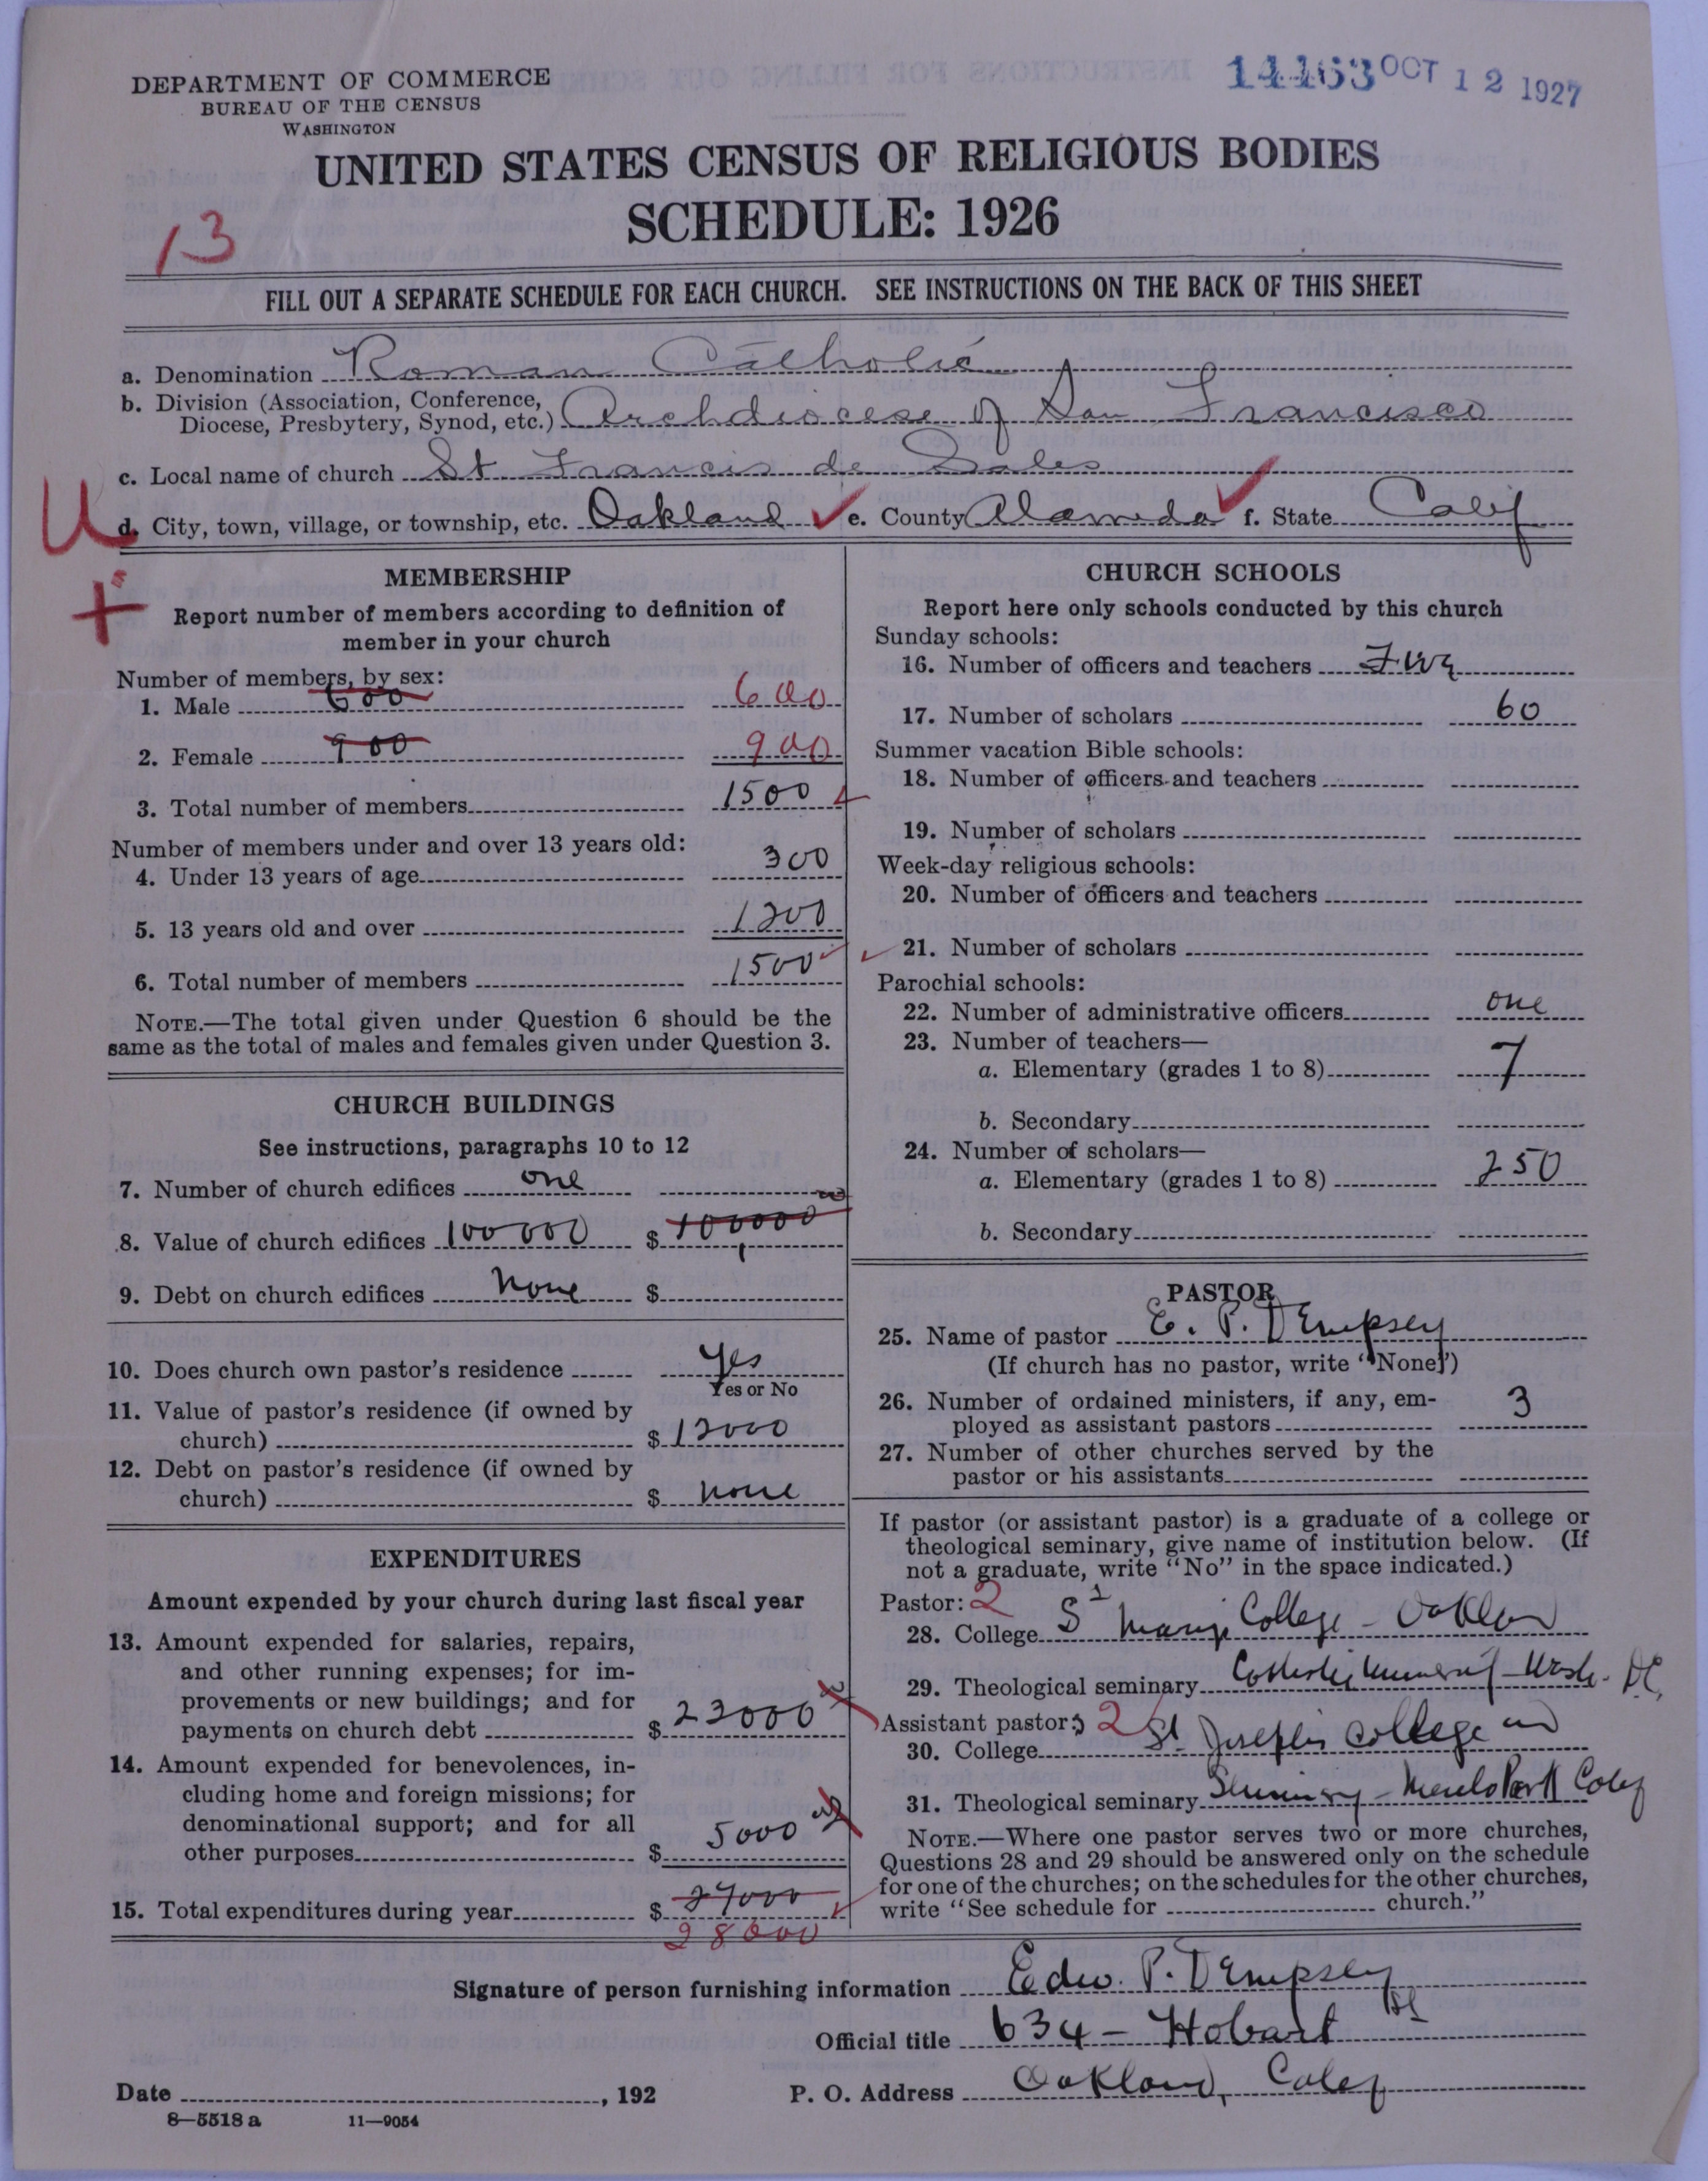 DEPARTMENT OF COMMERCE
BUREAU OF THE CENSUS
WASHINGTON
14463 OCT 12 1927
UNITED STATES CENSUS OF RELIGIOUS BODIES
SCHEDULE: 1926
13
FILL OUT A SEPARATE SCHEDULE FOR EACH CHURCH. SEE INSTRUCTIONS ON THE BACK OF THIS SHEET
a. Denomination Roman Catholic
b. Division (Association, Conference, Diocese, Presbytery, Synod, etc.) Archdiocese of San Francisco
c. Local name of church St Francis de Sales
U
d. City, town, village, or township, etc. Oakland e. County Alameda f. State Calif
MEMBERSHIP
Report number of members according to definition of
member in your church
Number of members, by sex:
1. Male 600 600
2. Female 900 900
3. Total number of members 1500
Number of members under and over 13 years old:
4. Under 13 years of age 300
5. 13 years old and over 1200
6. Total number of members 1500
NOTE.—The total given under Question 6 should be the
same as the total of males and females given under Question 3.
CHURCH BUILDINGS
See instructions, paragraphs 10 to 12
7. Number of church edifices one
8. Value of church edifices 100 000 $ 100000
9. Debt on church edifices None $
10. Does church own pastor's residence yes
Yes or No
11. Value of pastor's residence (if owned by
church) $ 12000
12. Debt on pastor's residence (if owned by
church) $ none
EXPENDITURES
Amount expended by your church during last fiscal year
13. Amount expended for salaries, repairs,
and other running expenses; for im-
provements or new buildings; and for
payments on church debt $ 23000
14. Amount expended for benevolences, in-
cluding home and foreign missions; for
denominational support; and for all
other purposes $ 5000
15. Total expenditures during year $ 27000
28000
CHURCH SCHOOLS
Report here only schools conducted by this church
Sunday schools:
16. Number of officers and teachers Five
17. Number of scholars 60
Summer vacation Bible schools:
18. Number of officers and teachers
19. Number of scholars
Week-day religious schools:
20. Number of officers and teachers
21. Number of scholars
Parochial schools:
22. Number of administrative officers one
23. Number of teachers—
a. Elementary (grades 1 to 8) 7
b. Secondary
24. Number of scholars—
a. Elementary (grades 1 to 8) 250
b. Secondary
PASTOR
25. Name of pastor E. P. Dempsey
(If church has no pastor, write "None")
26. Number of ordained ministers, if any, em-
ployed as assistant pastors 3
27. Number of other churches served by the
pastor or his assistants
If pastor (or assistant pastor) is a graduate of a college or
theological seminary, give name of institution below. (If
not a graduate, write "No" in the space indicated.)
Pastor: 2
28. College St Marys College - Oakland
29. Theological seminary Catholic University - Wash. D.C.
Assistant pastor: 2
30. College St Josephs College and
31. Theological seminary Seminary - Menlo Park Calif
NOTE.—Where one pastor serves two or more churches,
Questions 28 and 29 should be answered only on the schedule
for one of the churches; on the schedules for the other churches,
write "See schedule for church."
Signature of person furnishing information Edw. P. Dempsey
Official title 634 - Hobart St
Date , 192 P. O. Address Oakland, Calif
8—5518 a 11—9054